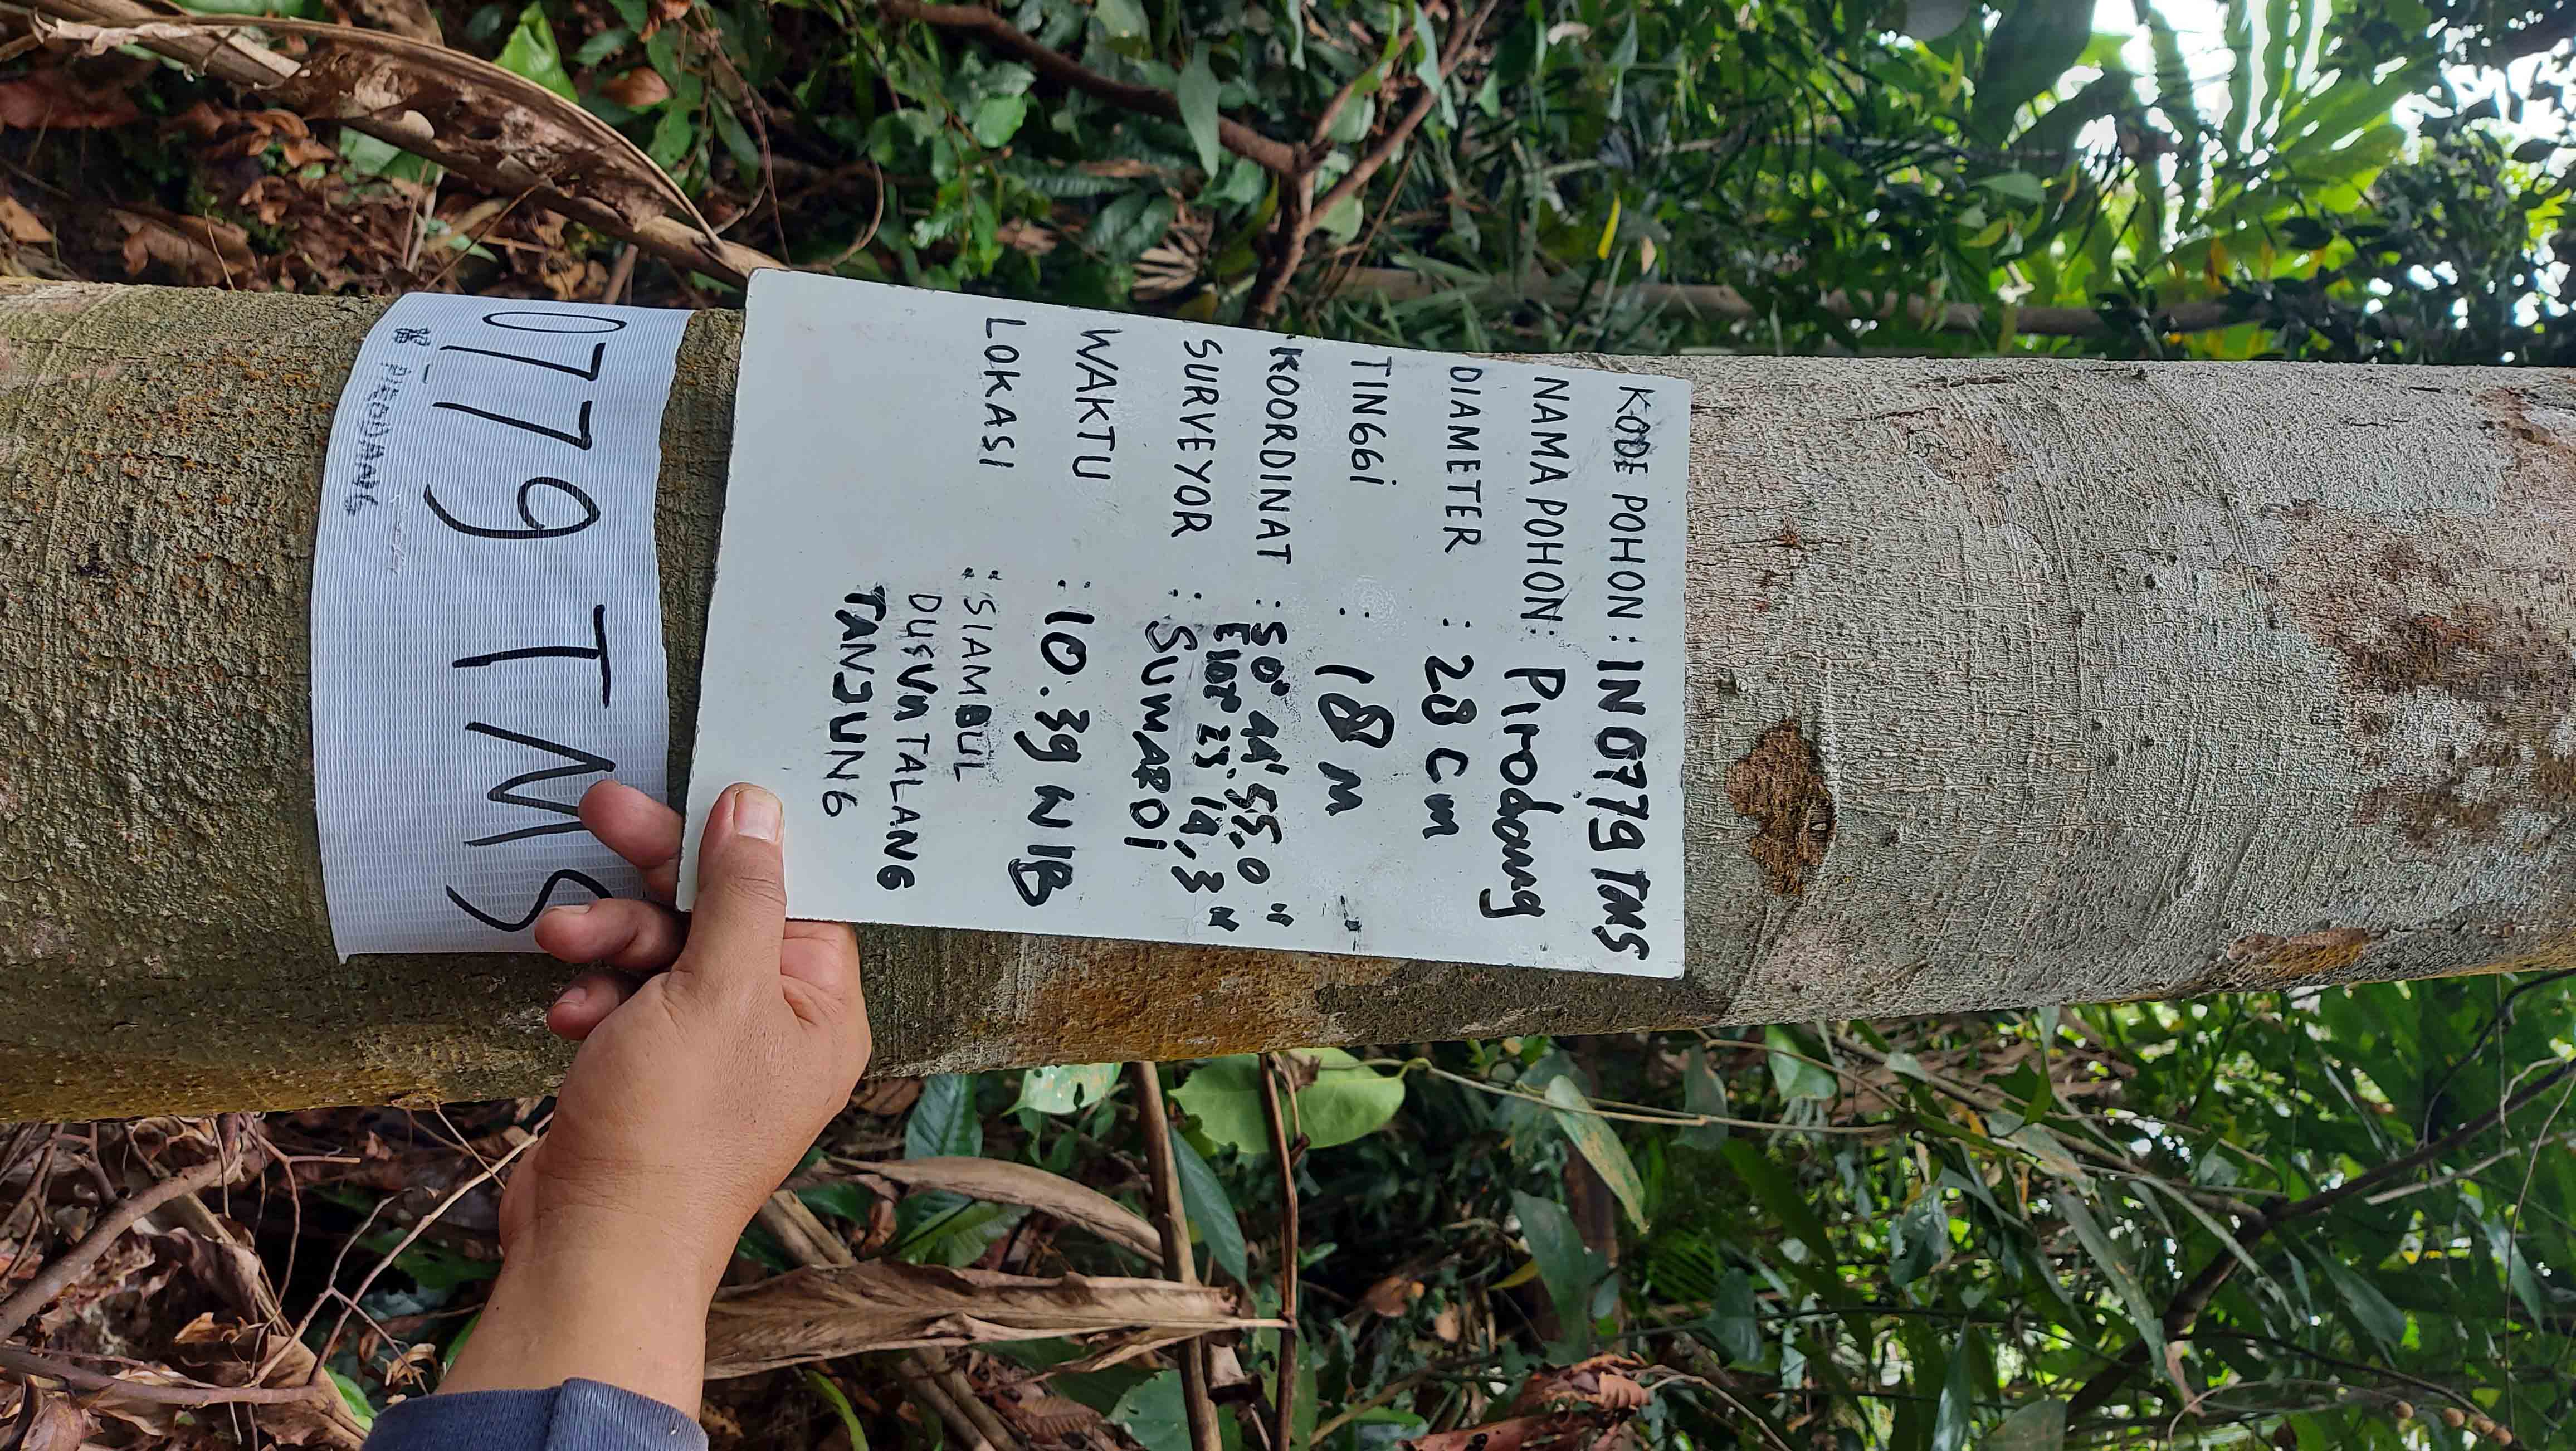 KODE POHON : IN 0779 TMS
NAMA POHON : Pirodang
DIAMETER : 28 Cm
TINGGi : 18 M
KOORDINAT : S 0° 44' 55,0"
E102° 23' 14,3"
SURVEYOR : SUMARDI
WAKTU : 10.39 WIB
LOKASI : SIAMBUL
DUSUN TALANG
TANJUNG
0779 TMS
PIRODANG